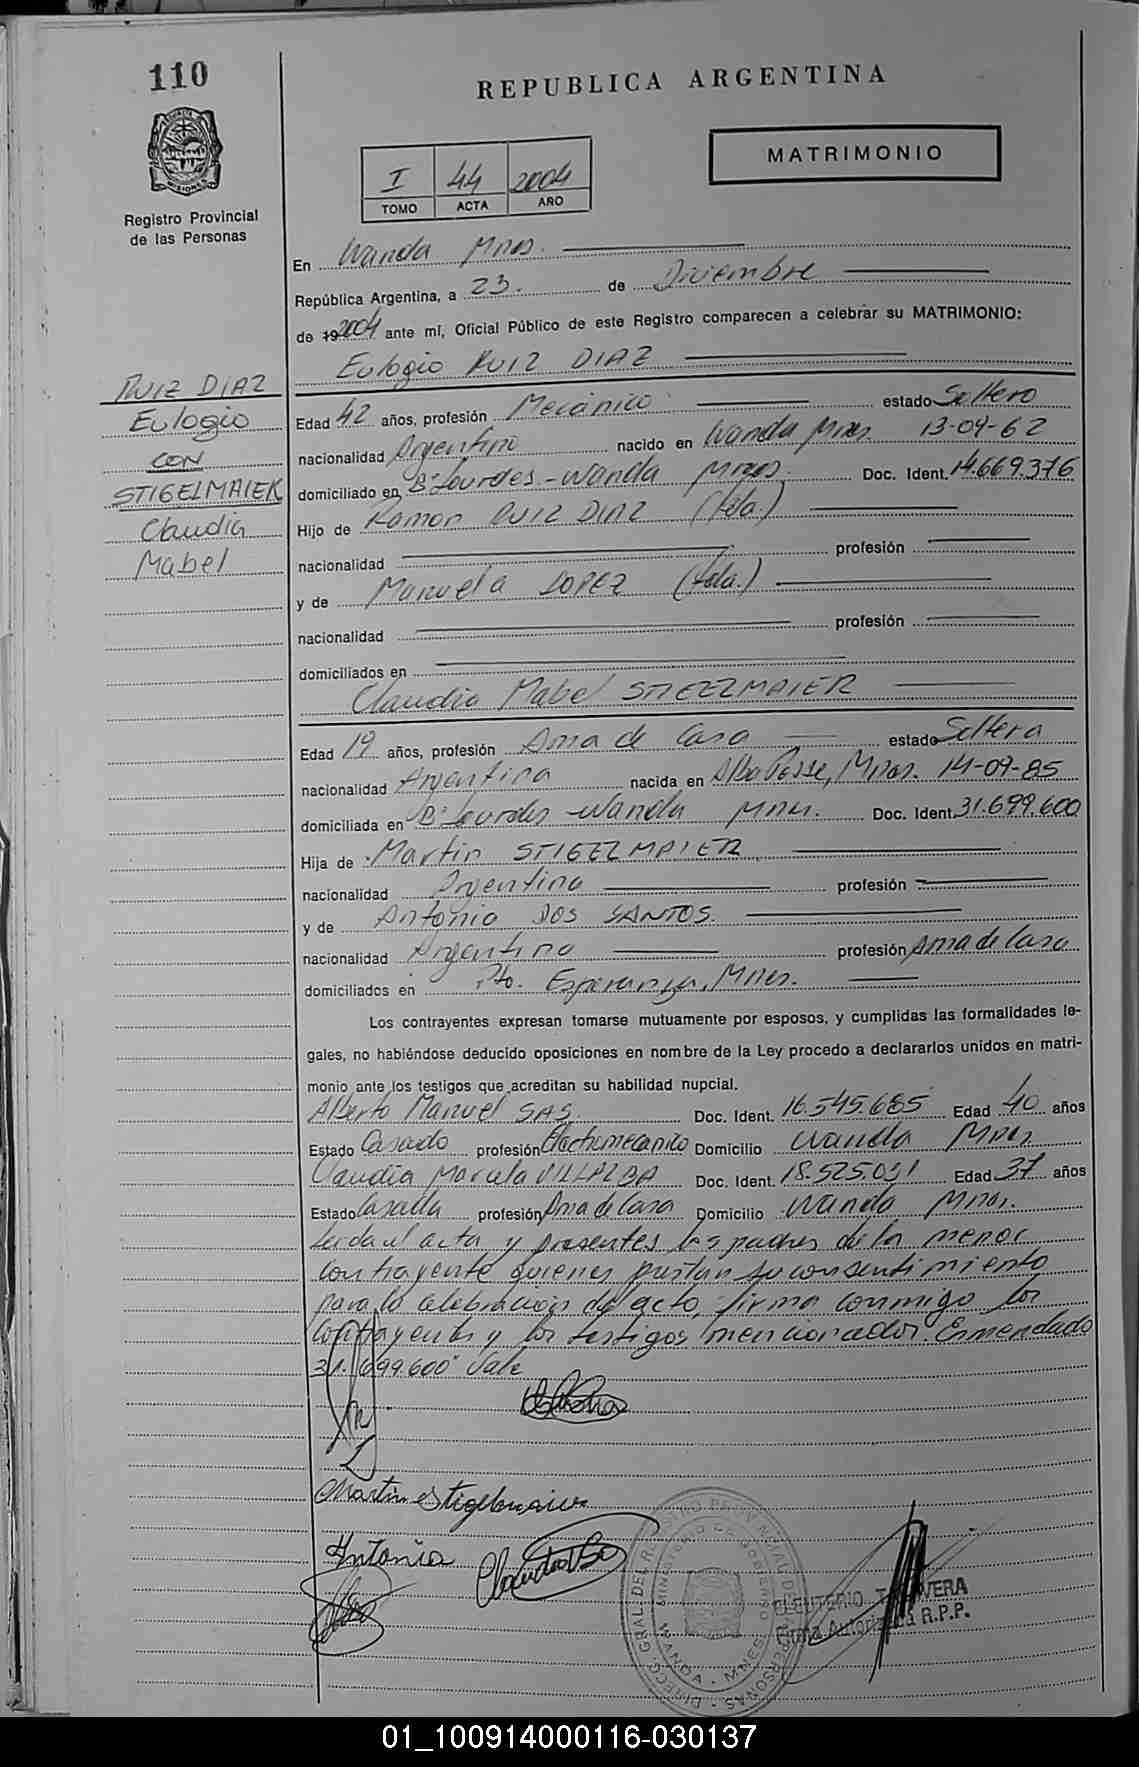 110
REPUBLICA ARGENTINA
MISIONES
Registro Provincial
de las Personas
I 44 2004
TOMO ACTA AÑO
MATRIMONIO
En Wanda Mnes.
República Argentina, a 23. de Diciembre
de 19 2004 ante mí, Oficial Público de este Registro comparecen a celebrar su MATRIMONIO:
Eulogio RUIZ DIAZ
RUIZ DIAZ
Eulogio
CON
STIGELMAIER
Claudia
Mabel
Edad 42 años, profesión Mecánico estado Soltero
nacionalidad Argentino nacido en Wanda Mnes. 13-09-62
domiciliado en Bº Lourdes - Wanda Mnes. Doc. Ident. 14.669.376
Hijo de Ramon RUIZ DIAZ (fda.)
nacionalidad profesión
y de Manuela LOPEZ (fda.)
nacionalidad profesión
domiciliados en
Claudia Mabel STIGELMAIER
Edad 19 años, profesión Ama de Casa estado Soltera
nacionalidad Argentina nacida en Alba Posse, Mnes. 14-09-85
domiciliada en Bº Lourdes - Wanda Mnes. Doc. Ident. 31.699.600
Hija de Martin STIGELMAIER
nacionalidad Argentino profesión
y de Antonia DOS SANTOS.
nacionalidad Argentina profesión Ama de Casa
domiciliados en Pto. Esperanza, Mnes.
Los contrayentes expresan tomarse mutuamente por esposos, y cumplidas las formalidades le-
gales, no habiéndose deducido oposiciones en nombre de la Ley procedo a declararlos unidos en matri-
monio ante los testigos que acreditan su habilidad nupcial.
Alberto Manuel SAS Doc. Ident. 16.545.685 Edad 40 años
Estado Casado profesión Electromecanico Domicilio Wanda Mnes
Claudia Marcela VILLALBA Doc. Ident. 18.525.031 Edad 37 años
Estado Casada profesión Ama de Casa Domicilio Wanda Mnes.
Leida el acta y presentes los padres de la menor
contrayente quienes prestan su consentimiento
para la celebración del acto, firma conmigo los
contrayentes y los testigos mencionados. Enmendado
31.699.600" Vale
Martin Stigelmaier
Antonia
ELEUTERIO TALAVERA
Firma Autorizada R.P.P.
01_100914000116-030137